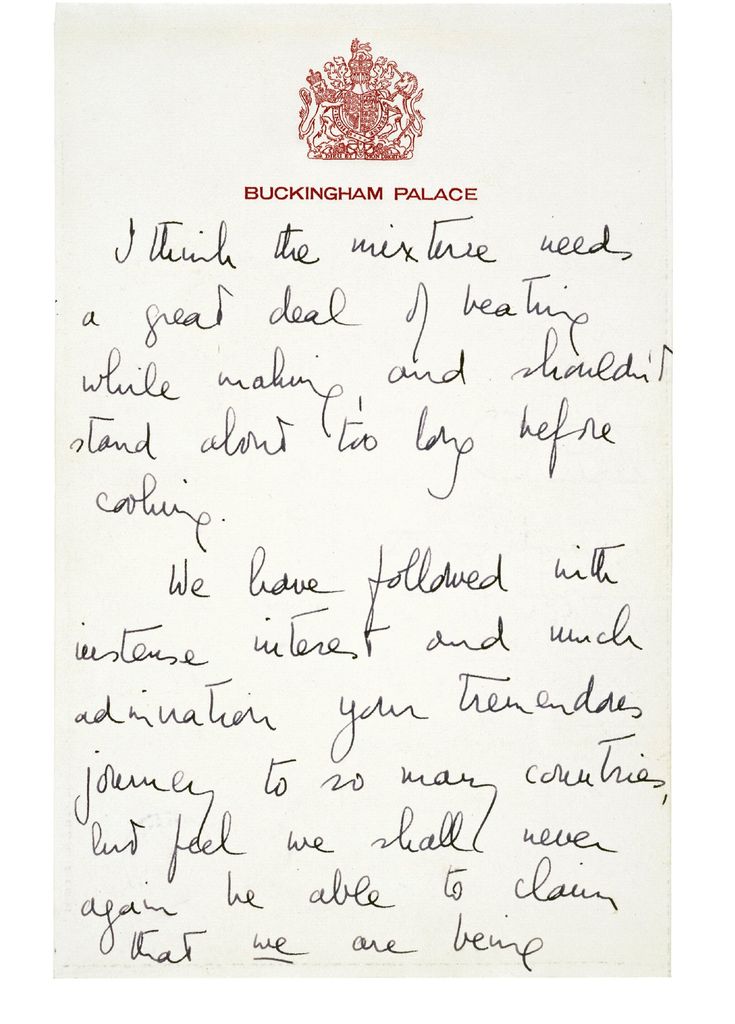 BUCKINGHAM PALACE
I think the mixture needs
a great deal of beating
while making, and shouldn't
stand about too long before
cooking.
We have followed with
intense interest and much
admiration your tremendous
journey to so many countries,
but feel we shall never
again be able to claim
that we are being